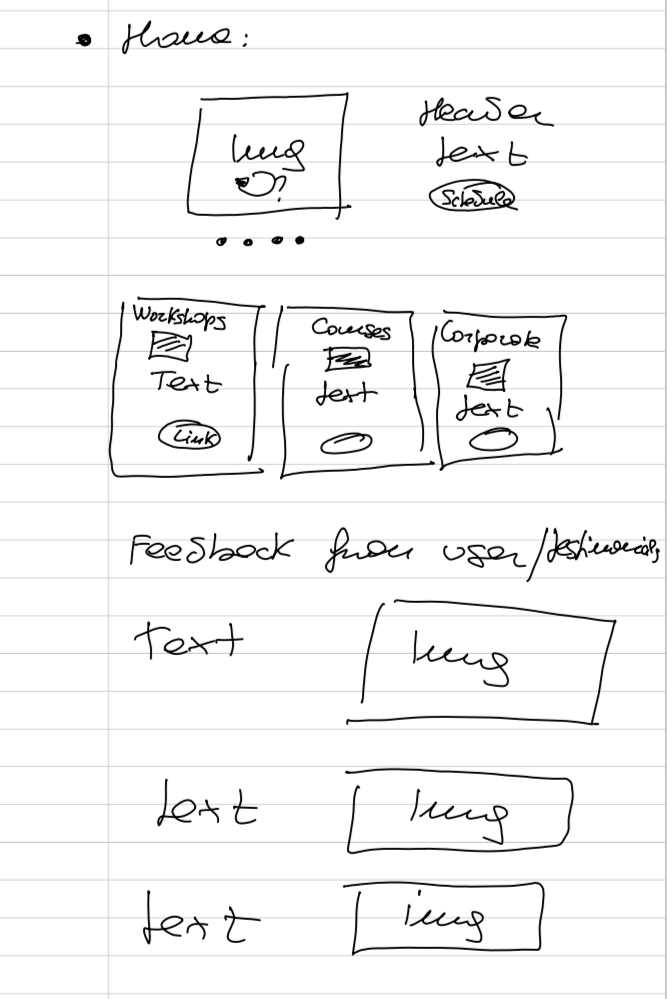 • Home:
img
?
Header
text
Schedule
Workshops
Text
Link
Courses
text
Corporate
text
Feedback from user/testimonials
Text
img
text
img
text
img